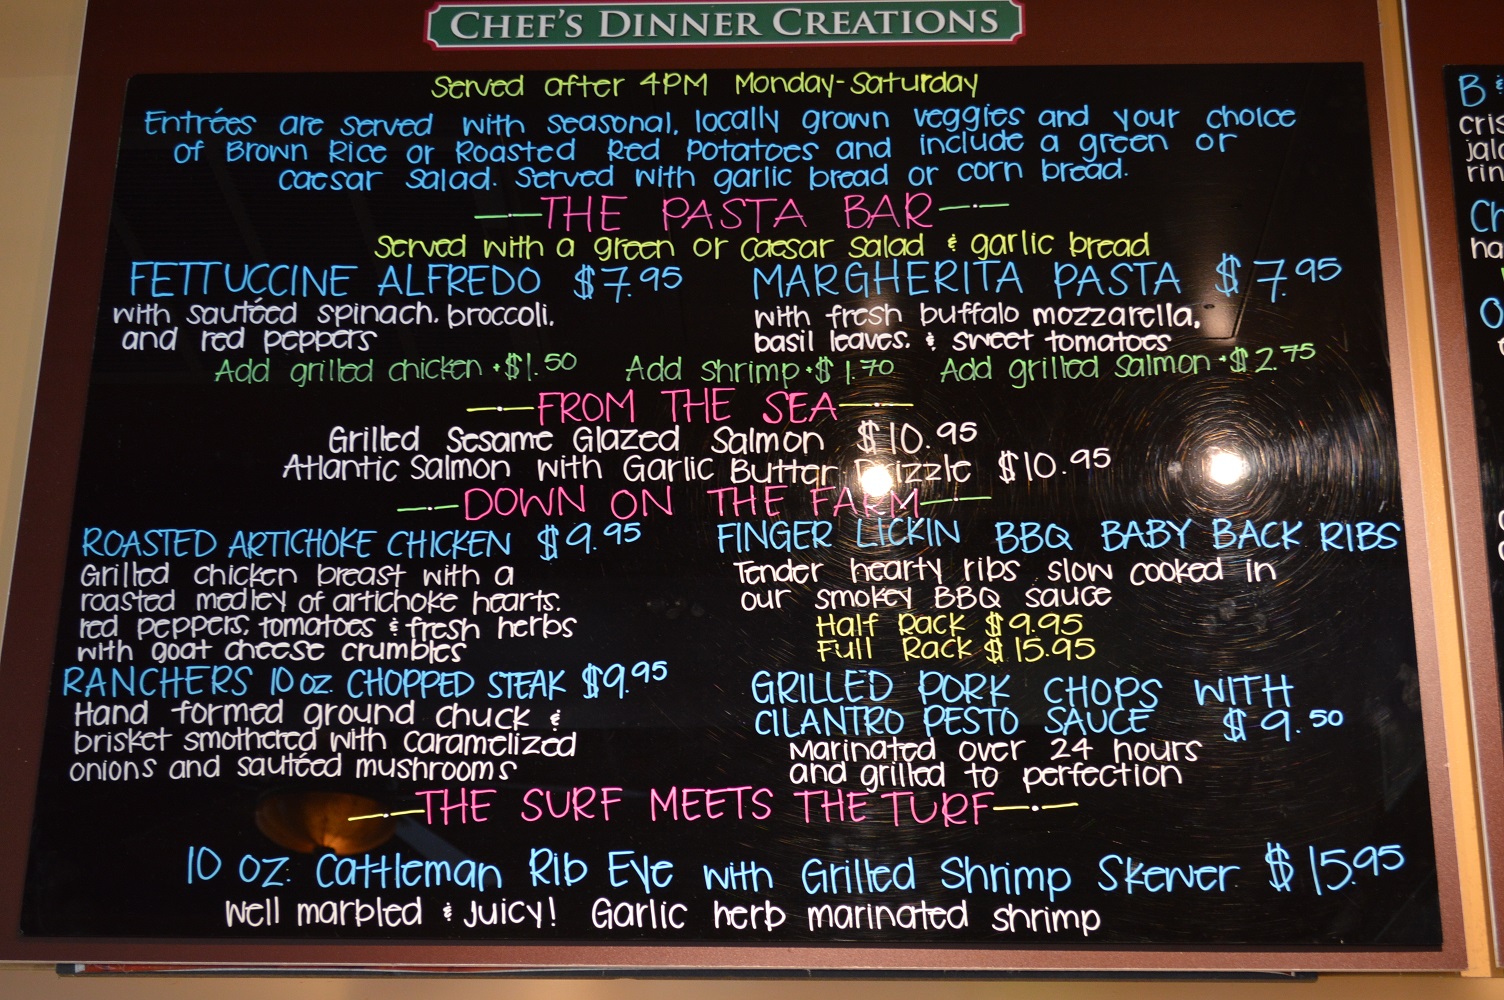 CHEF'S DINNER CREATIONS
Served after 4PM Monday-Saturday
Entrées are served with seasonal, locally grown veggies and your choice
of Brown Rice or Roasted Red Potatoes and include a green or
caesar salad. Served with garlic bread or corn bread.
THE PASTA BAR
Served with a green or caesar salad & garlic bread
FETTUCCINE ALFREDO $7.95
with sautéed spinach, broccoli,
and red peppers
MARGHERITA PASTA $7.95
with fresh buffalo mozzarella,
basil leaves, & sweet tomatoes
Add grilled chicken · $1.50 Add shrimp · $1.70 Add grilled salmon · $2.75
FROM THE SEA
Grilled Sesame Glazed Salmon $10.95
Atlantic Salmon with Garlic Butter Drizzle $10.95
DOWN ON THE FARM
ROASTED ARTICHOKE CHICKEN $9.95
Grilled chicken breast with a
roasted medley of artichoke hearts.
red peppers, tomatoes & fresh herbs
with goat cheese crumbles
FINGER LICKIN BBQ BABY BACK RIBS
Tender hearty ribs slow cooked in
our smokey BBQ sauce
Half Rack $9.95
Full Rack $15.95
RANCHERS 10 oz. CHOPPED STEAK $9.95
Hand formed ground chuck &
brisket smothered with caramelized
onions and sautéed mushrooms
GRILLED PORK CHOPS WITH
CILANTRO PESTO SAUCE $9.50
Marinated over 24 hours
and grilled to perfection
THE SURF MEETS THE TURF
10 oz. Cattleman Rib Eye with Grilled Shrimp Skewer $15.95
Well marbled & juicy! Garlic herb marinated shrimp
B &
cris
jala
rin
Ch
ha